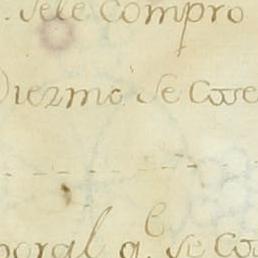 . sele compro
Diezmo se Cove
poral q.e se Co